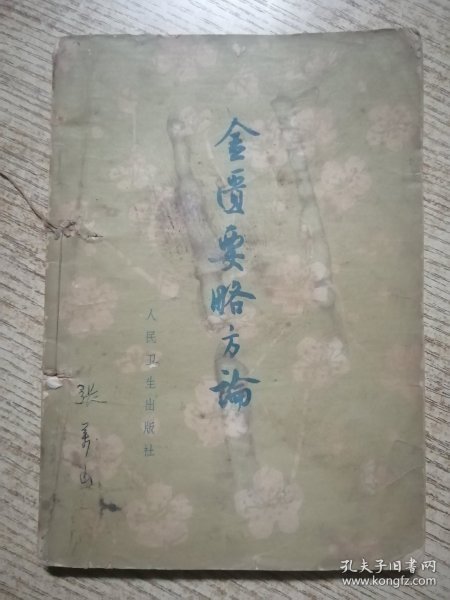 金匱要略方論
人民卫生出版社
张
孔夫子旧书网
www.kongfz.com